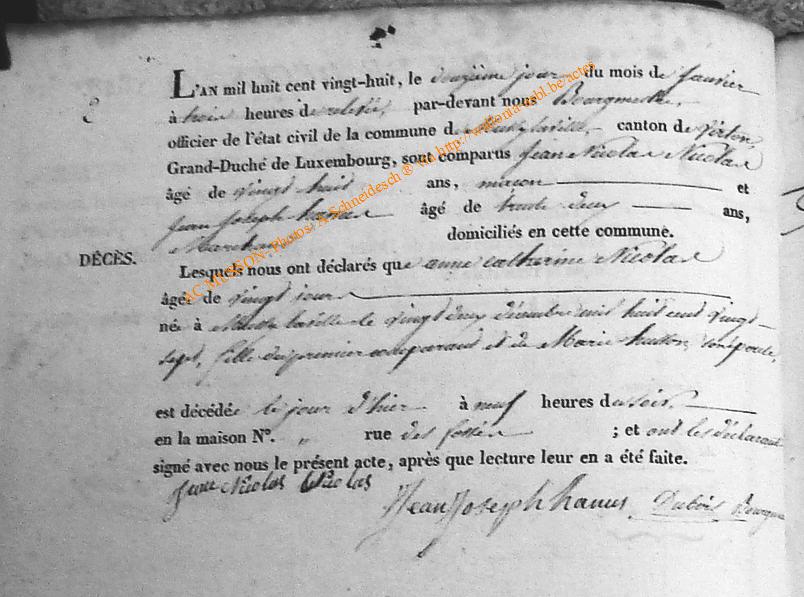 2
L'AN mil huit cent vingt-huit, le douzième jour du mois de Janvier
à trois heures de relevée, par-devant nous Bourgmestre,
officier de l'état civil de la commune de canton de Virton,
Grand-Duché de Luxembourg, sont comparus Jean Nicolas Nicolas
âgé de vingt huit ans, maçon et
Jean Joseph hanus âgé de trente deux ans,
Marchand domiciliés en cette commune.
DÉCÈS.
Lesquels nous ont déclarés que anne catherine Nicolas
âgée de vingt jours
née à le vingt deux décembre mil huit cent vingt
sept, fille du premier comparant et de Marie husson, son épouse,
est décédée le jour d'hier à neuf heures du soir,
en la maison N°. „ rue des fossés ; et ont les déclarants
signé avec nous le présent acte, après que lecture leur en a été faite.
Jean Nicolas Nicolas
Jean Joseph hanus Dubois Bourgm
AC MUSSON: Photos: A Schneidesch ® via http://willontarabl.be/actes